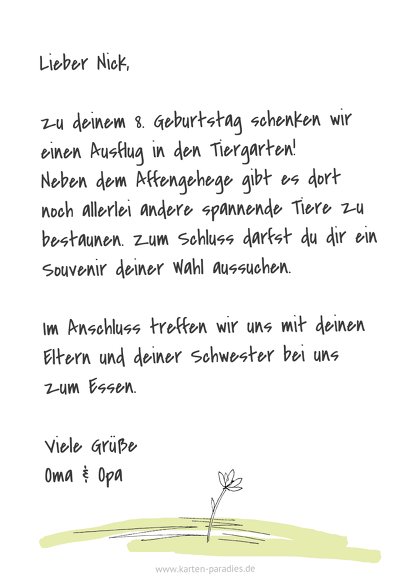 Lieber Nick,
zu deinem 8. Geburtstag schenken wir
einen Ausflug in den Tiergarten!
Neben dem Affengehege gibt es dort
noch allerlei andere spannende Tiere zu
bestaunen. Zum Schluss darfst du dir ein
Souvenir deiner Wahl aussuchen.
Im Anschluss treffen wir uns mit deinen
Eltern und deiner Schwester bei uns
zum Essen.
Viele Grüße
Oma & Opa
www.karten-paradies.de